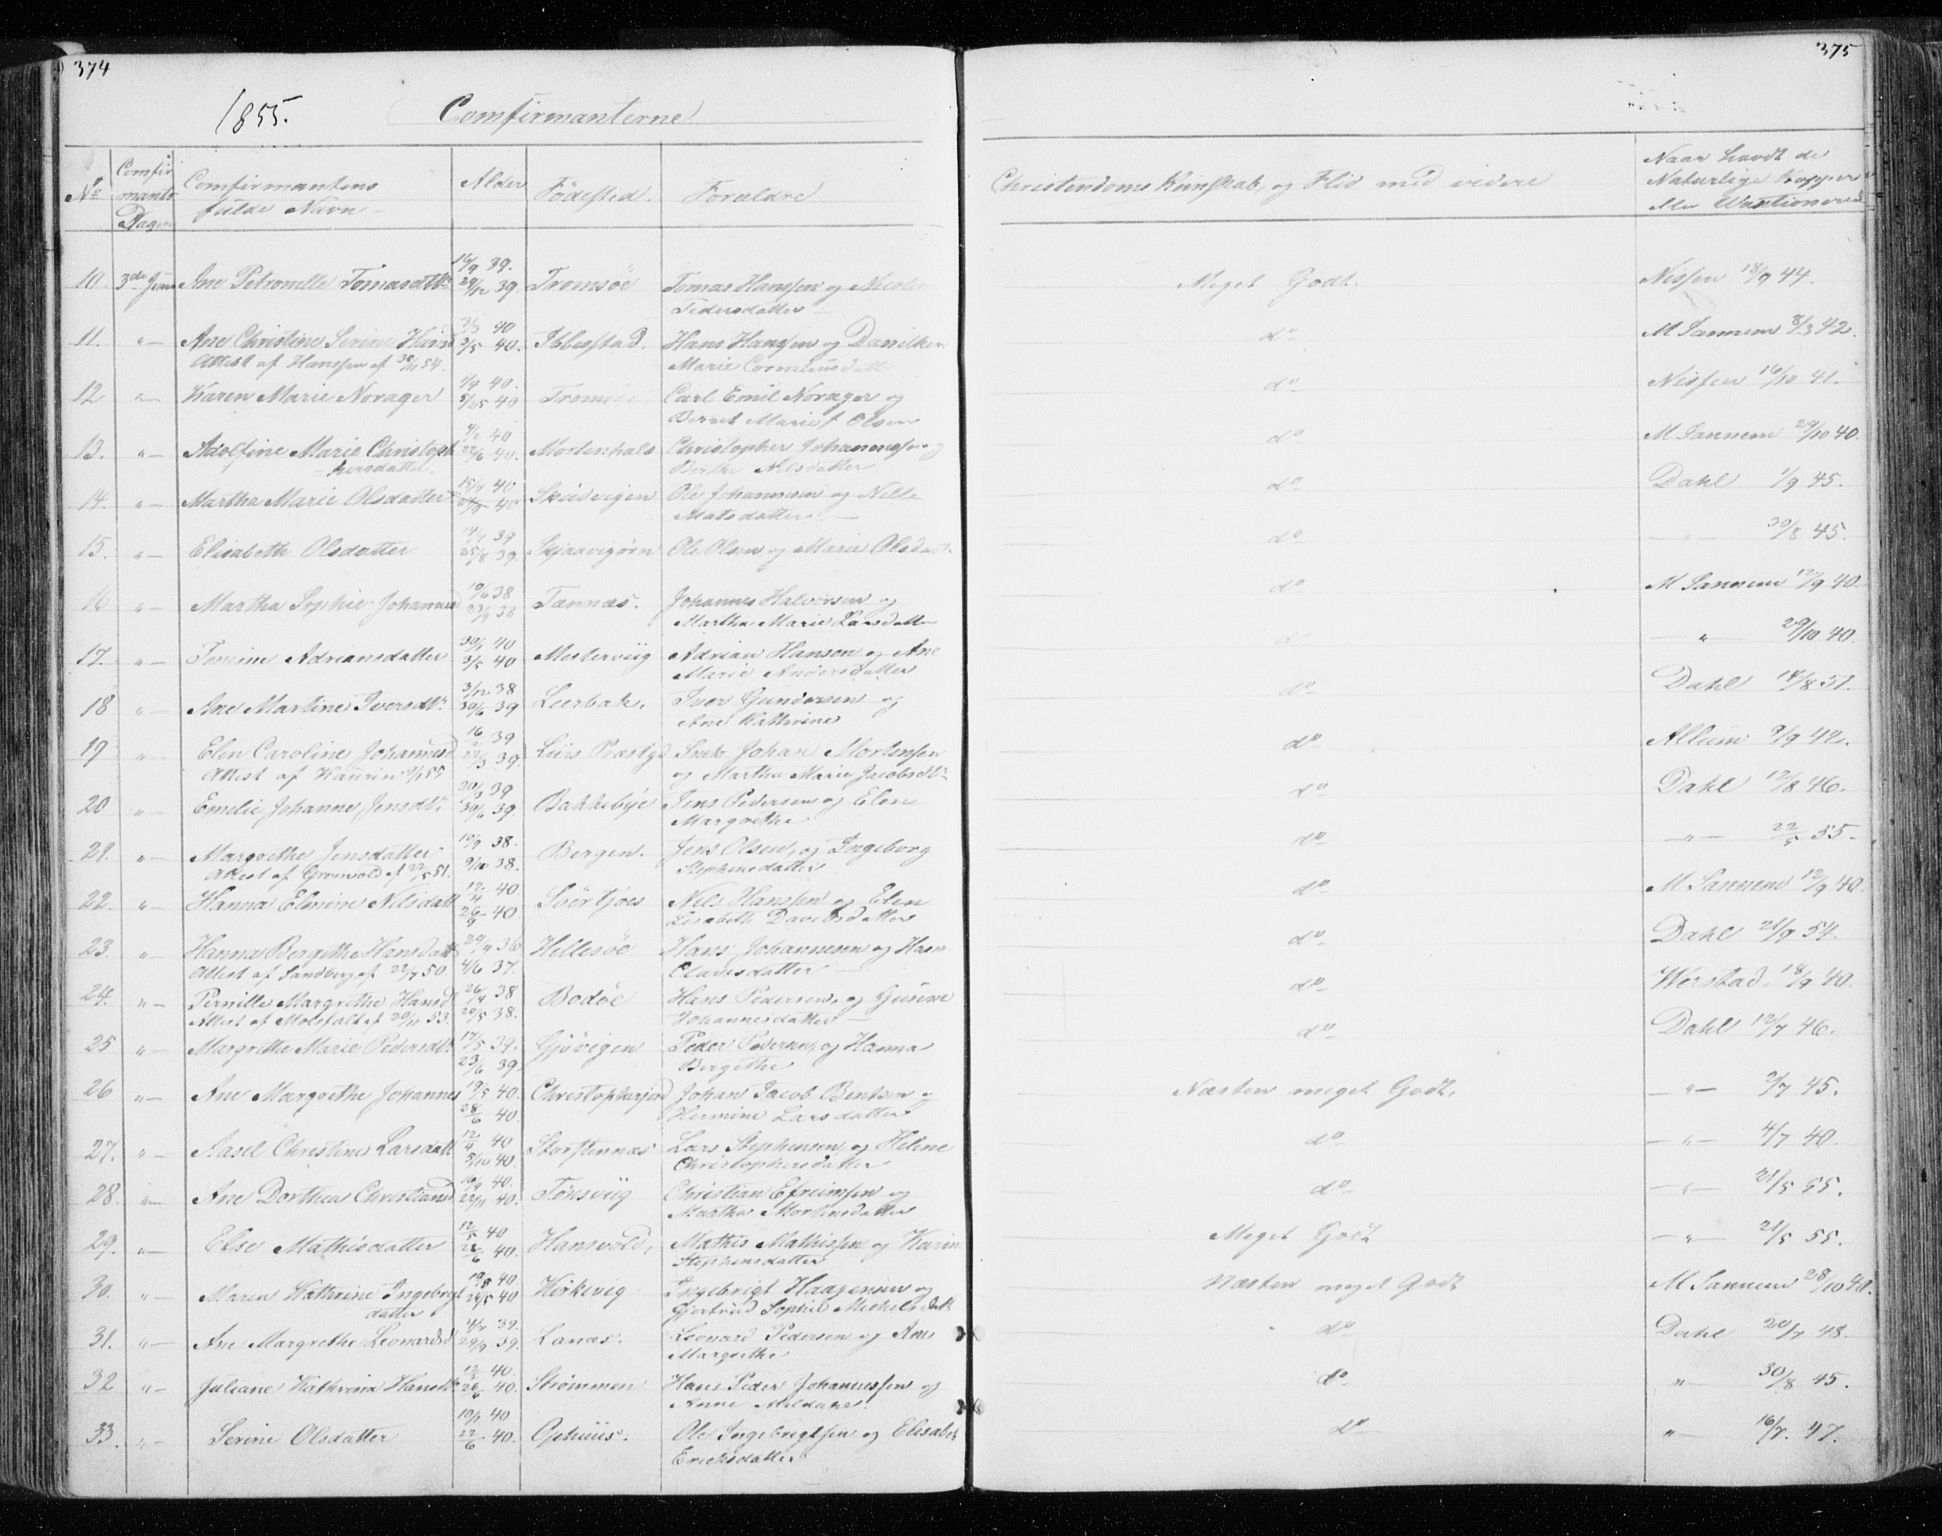 374
375
1855.
Comfirmanterne
No
Comfir
mants
Dagen
Comfirmantens
fulde Navn
Alder
Fødested.
Foreldre
Christendoms Kunskab, og Flid med videre
Naar havdt de
Naturlige kopper
eler
10. 3de Juni Ane Petronelle Tomasdtr 39. 29/12 39. Tromsøe Tomas Hanssen og Nicoline Meget Godt. Nissen 18/9 44.
Pedersdatter
11. " Ane Christine Serine Hansd 3/3 40 3/5 40. Iblestad. Hans Hanssen og Danilken do M Sannem 8/3 42.
Attest af Hanssen af 30/11 54. Marie Corneliusdatt
12 " Karen Marie Norager 40. 40 Tromsøe Carl Emil Norager og do Nissen 16/10 41.
Bernt Marie Olsen
13. " Adolfine Marie Christoph 40 22/6 40. Mortenhals Christopher Johannessen og do M Sannem 29/10 40.
hersdatter. Berthe Nilsdatter
14. " Martha Marie Olsdatter 40 40 Skudvigen Ole Johannesen og Nille do Dahl 1/9 45.
Matsdatter
15. " Elisabeth Olsdatter 14/7 39 25/8 39. Skjaavigørn Ole Olsen og Marie Olsdatt do " 30/8 45.
16 " Martha Sophie Johannesd 10/6 38 23/9 38 Tennæs. Johannes Halvorsen og do M Sannem 12/9 40.
Martha Marie Larsdatter
17. " Tomine Adriansdatter 30/1 40 3/5 40 Mesterviig Adrian Hansen og Ane do " 29/10 40.
Marie Andersdatter
18 " Ane Martine Iversdtr 3/12 38 30/6 39 Leerbak. Iver Gundersen og do Dahl 14/8 51.
Ane Kathrine
19 " Elen Caroline Johannesd 16/2 39 22/3 39. Præstgd Johan Mortensen do Allum 9/9 42.
Attest af Kaurin 55 og Martha Marie Jacobsdtr
20 " Emelie Johanne Jensdtr. 30/3 39 30/6 39. Bakkebye Jens Pedersen og Elen do Dahl 12/8 46.
Margrethe
21. " Margrethe Jensdatter 38. 9/10 38. Bergen. Jens Olsen, og Ingeborg do " 22/5 55.
Attest af Grønvold af 22/5 51. Stephensdatter
22. " Hanna Elmine Nilsdatt 12/4 40 26/4 40. Nils Hanssen og Elen do M Sannem 12/9 40.
Lisabeth Davidsdatter
23. " Hanna Bergithe Hansdatt 29/9 36 4/6 37. Hellesøe Hans Johannesen og do Dahl 21/9 54.
Attest af Sandberg af 22/7 50 Clausdatter
24. " Pernille Margrethe Hansd 26/4 38 20/5 38. Bodøe Hans Pedersen, og do Werstad. 18/9 40.
Attest af af 20/11 53. Johannesdatter
25 " Margrethe Marie Pedersdtr 17/5 39. 23/6 39 Gjøvigen Peder Pedersen, og Hanna do Dahl 12/7 46.
Bergithe
26 " Ane Margrethe Johannes 19/5 40. 28/6 40. Christophersjord Johan Jacob Bentsen og Næsten meget Godt. " 2/7 45.
Hermine Larsdatter
27. " Aasel Christine Larsdatt 12/4 40 5/10 40. Storstennæs Lars Stephensen og Helene do " 4/7 40.
Christophersdatter
28. " Ane Dorthea Christiansd 16/9 40. 22/11 40. Tønsviig Christian Efreimsen og do " 21/5 55.
Martha Mortensdatter
29. " Else Mathisdatter 12/5 40 22/6 40. Hansvold, Mathis Mathissen og Karin Meget Godt " 21/5 55.
Stephensdatter
30. " Maren Kathrine Ingebrigt 19/3 40. 24/5 40 Kirkevig Ingebrigt Haagensen og Næsten meget Godt M Sannem 28/10 40.
datter Gjertrud Sophie Michelsdatt
31. " Ane Margrethe Leonardsd 39. 29/9 39. Lanæs. Leonard Pedersen og Ane do Dahl 20/7 48.
Margrethe
32 " Juliane Kathrina Hansdtr 12/3 40. 26/6 40. Strømmen Hans Peder Johannessen og do " 30/8 45.
Anne
33. " Serine Olsdatter 40 22/6 40. Ophuus. Ole Ingebrigtsen og Elisabet do " 16/7 47.
Ericksdatter